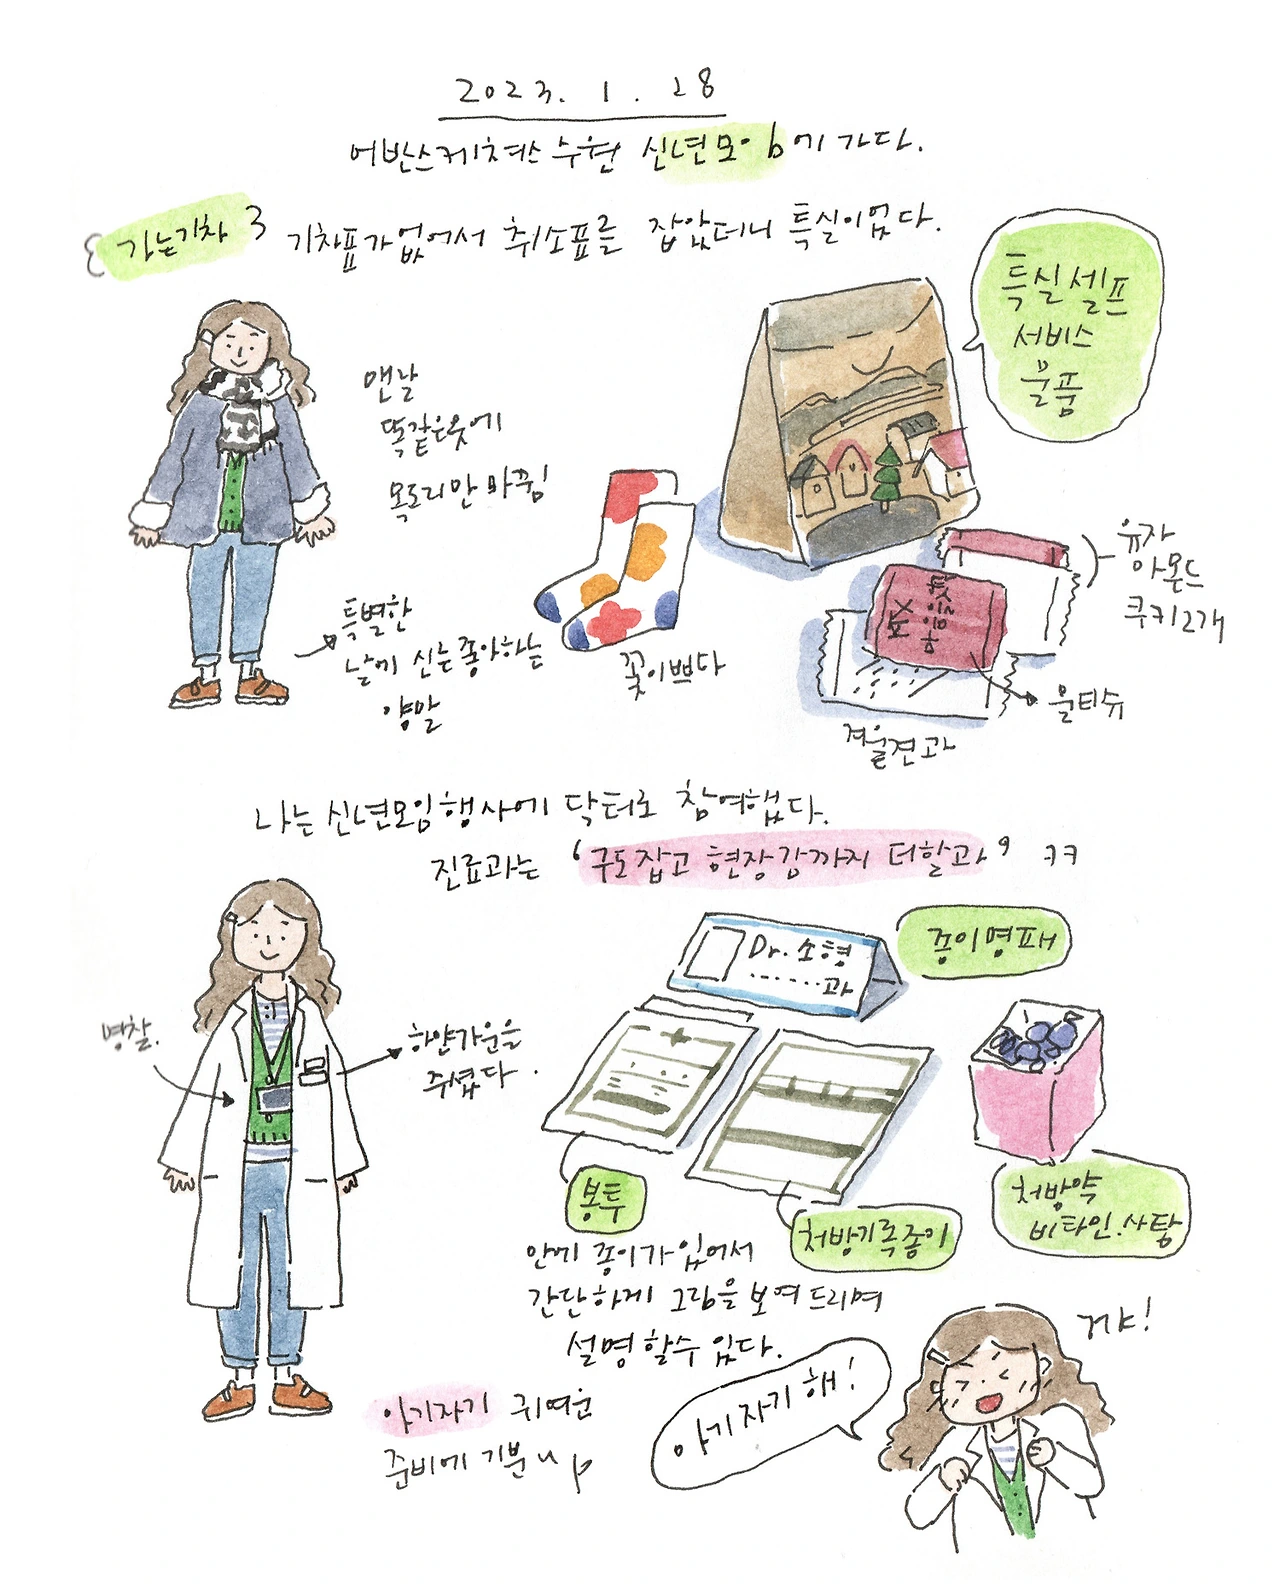 2023. 1. 28
어반스케쳐스 수원 신년모임에 가다.
가는기차
기차표가없어서 취소표를 잡았더니 특실이었다.
특실셀프
서비스
물품
맨날
똑같은옷에
목도리만 바뀜
특별한
날에 신는 좋아하는
양말
꽃이쁘다
유자
아몬드
쿠키2개
물티슈
겨울견과
나는 신년모임행사에 닥터로 참여했다.
진료과는 '구도잡고 현장감까지 더할과' ㅋㅋ
명찰.
하얀가운을
주셨다.
Dr. 소형
......과
종이명패
봉투
안에 종이가 있어서
간단하게 그림을 보여드리며
설명할수 있다.
처방기록종이
처방약
비타민.사탕
아기자기 귀여운
준비에 기분 up
아기자기해!
꺄!